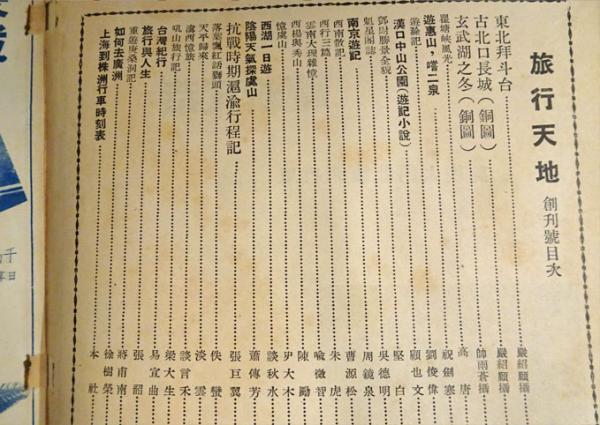 旅行天地 創刊號目次
東北拜斗台 嚴紹顧攝
古北口長城(銅圖) 嚴紹顧攝
玄武湖之冬(銅圖) 帥雨蒼攝
瞿塘峽風光 高唐
遊惠山，嚐二泉 祝劍寒
遊黔記 劉俊偉
漢口中山公園(遊記小說) 顧也文
鄧尉勝景全貌 堅白
魁星閣誌 吳德明
南京遊記 周鏡泉
西南散記 曹源松
西行三篇 朱虎
雲南大理雜憶 喻徵智
西楊與秀山 陳勵
憶虞山 尹大木
西湖一日遊 談秋水
陰陽天氣探虞山 蕭傳芳
抗戰時期滬渝行程記 張巨翼
落葉飄紅訪獅頭 佚蠻
天平歸來 淡雲
滇西憶旅 談言禾
吼山旅行記 梁大生
台灣紀行 易宜曲
旅行與人生 張韶
重遊庚桑洞記 蔣甫南
如何去廣洲 徐樹榮
上海到株洲行車時刻表 本社